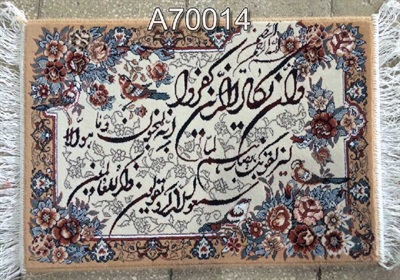 A70014
بسم الله الرحمن الرحیم
وان یکاد الذین کفروا
لیزلقونک بابصارهم لما
سمعوا الذکر و یقولون
انه لمجنون
وما هو الا
ذکر للعالمین